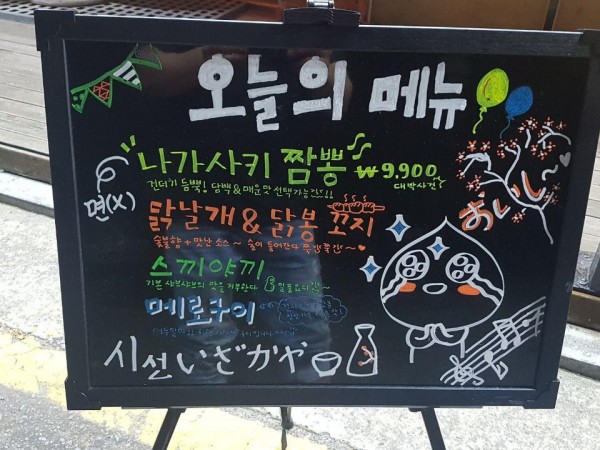 오늘의 메뉴
나가사키 짬뽕 ₩9,900
건더기 듬뿍! 담백&매운맛 선택가능!!
대박사건
면(X)
닭날개 & 닭봉 꼬지
숯불향+맛난 소스~
おいし~
스끼야끼
기본 샤부샤브의 맛을 거부한다
메로구이
시선いざかや